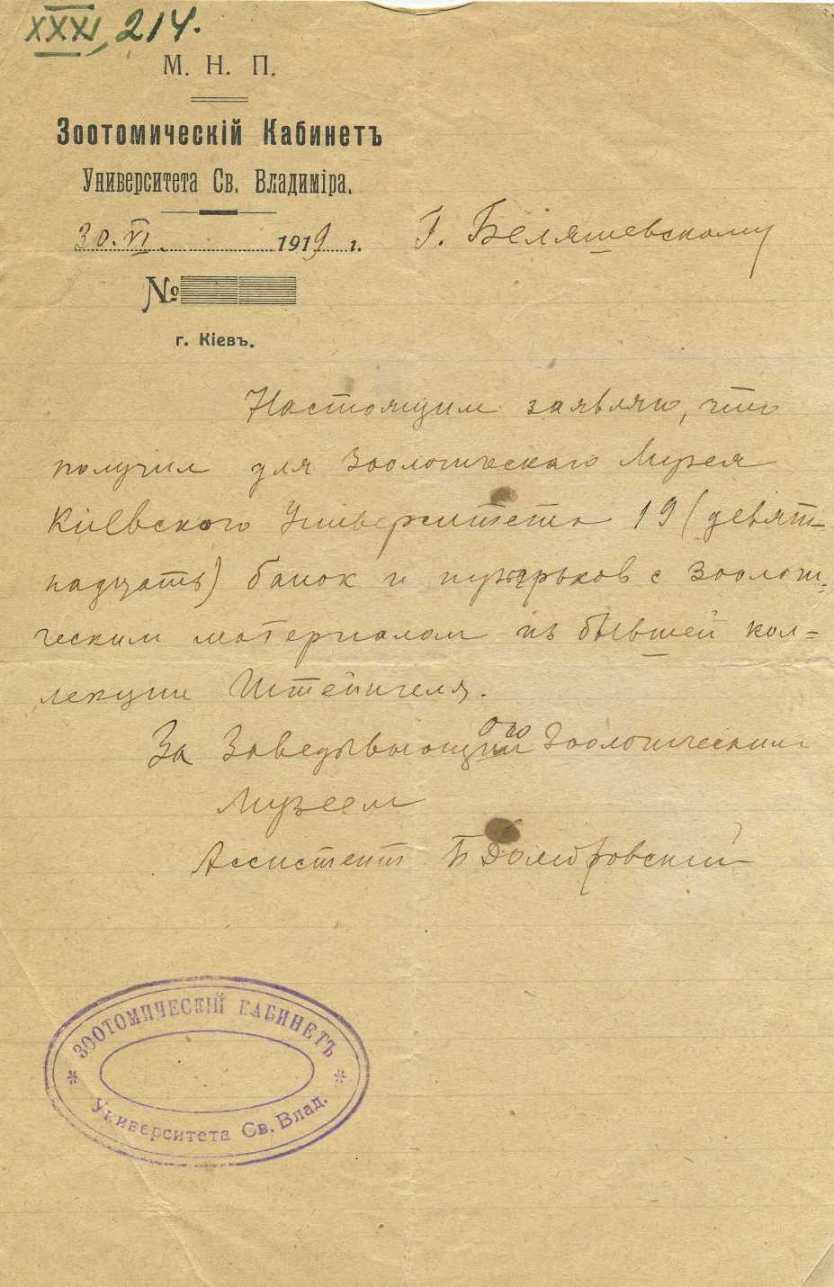 XXXI, 214.
М. Н. П.
Зоотомическій Кабинетъ
Университета Св. Владиміра.
30. VI 1919 г.
Г. Беляшевскому
№
г. Кіевъ.
Настоящим заявляю, что
получил для Зоологического Музея
Киевского Университета 19 (девят-
надцать) банок и пузырьков с зоологи-
ческим материалом из бывшей кол=
лекции Штейнгеля.
За Заведывающого Зоологическим
Музеем
Ассистент Б Домбровский
ЗООТОМИЧЕСКІЙ КАБИНЕТЪ
Университета Св. Влад.